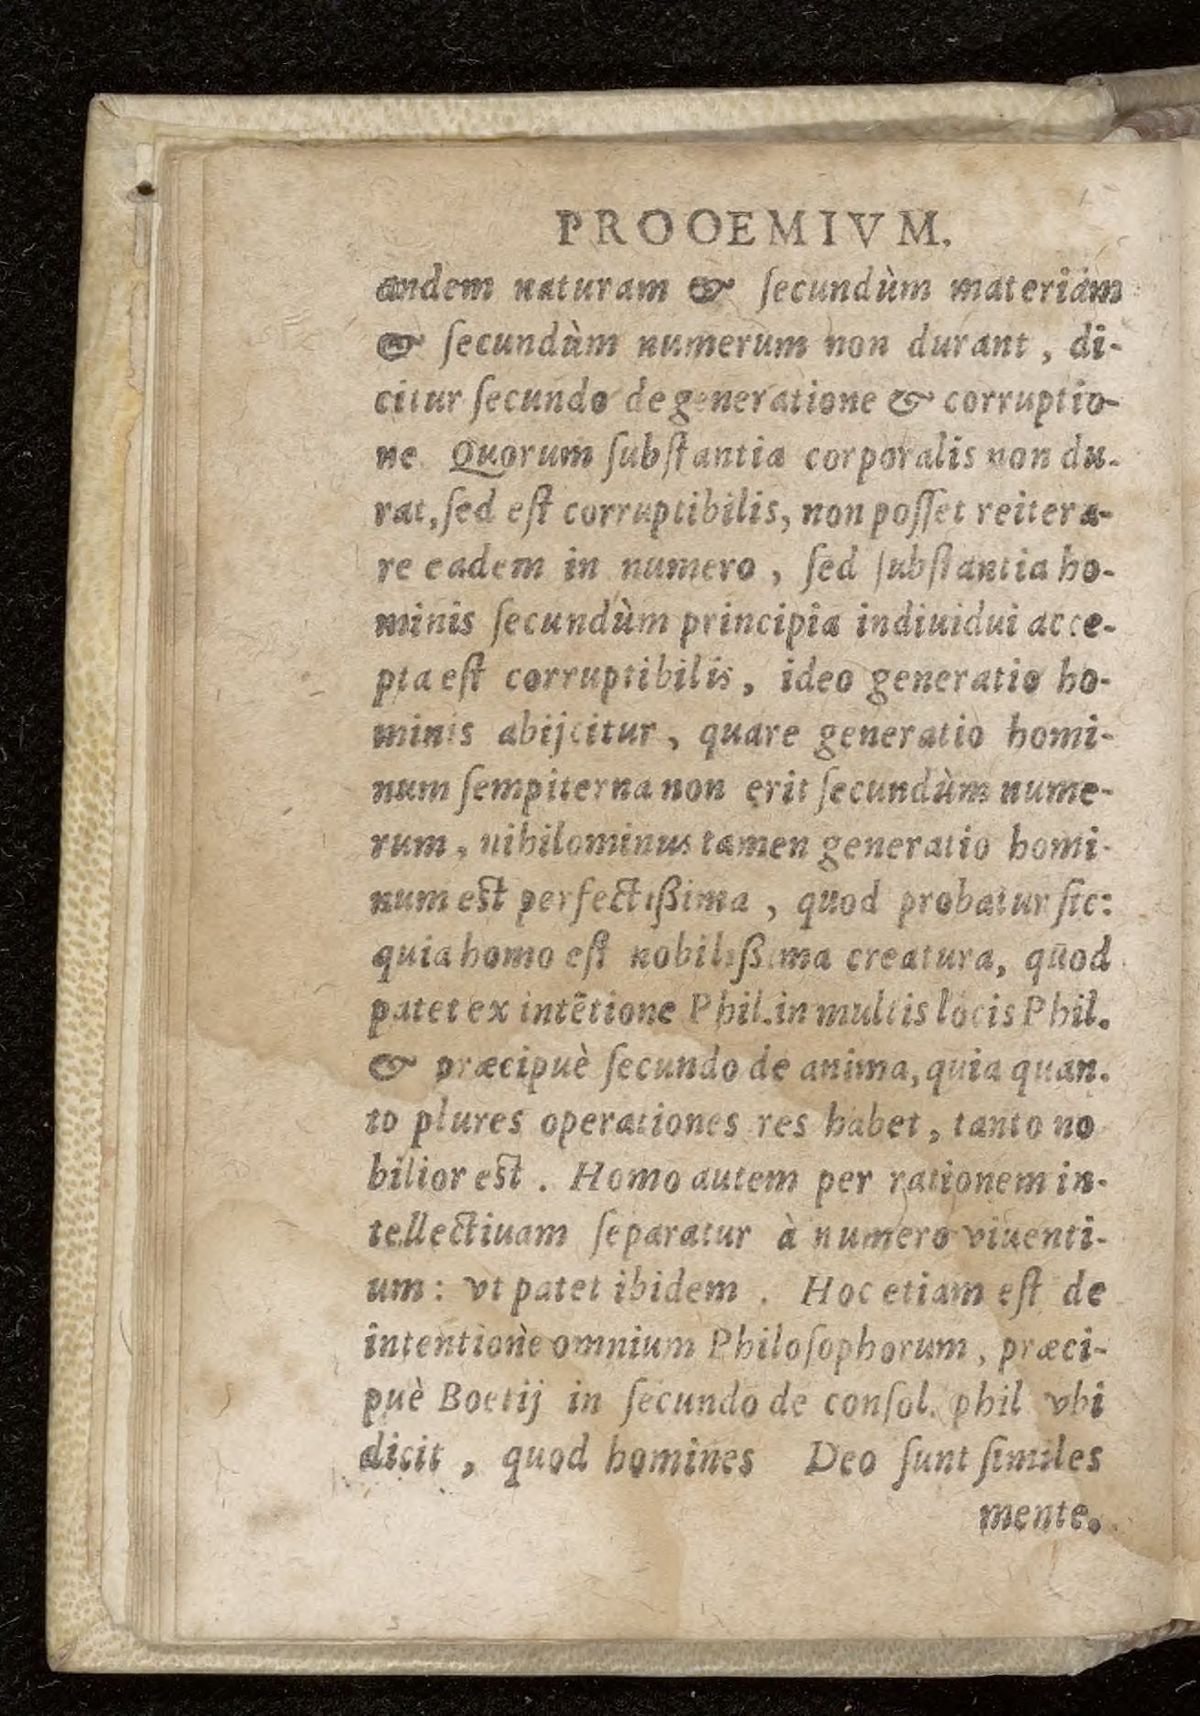 PROOEMIVM.
andem naturam & ſecundùm materiam
& ſecundùm numerum non durant, di-
citur ſecundo de generatione & corruptio-
ne. Quorum ſubſtantia corporalis non du-
rat, ſed eſt corruptibilis, non poſſet reitera-
re eadem in numero, ſed ſubſtantia ho-
minis ſecundùm principia indiuidui acce-
pta eſt corruptibilis, ideo generatio ho-
minis abijcitur, quare generatio homi-
num ſempiterna non erit ſecundùm nume-
rum, nihilominus tamen generatio homi-
num est perfectißima, quod probatur ſic:
quia homo eſt nobilißima creatura, quod
patet ex intētione Phil. in multis locis Phil.
& præcipuè ſecundo de anima, quia quan-
to plures operationes res habet, tanto no
bilior est. Homo autem per rationem in-
tellectiuam ſeparatur à numero viuenti-
um: vt patet ibidem. Hoc etiam eſt de
intentione omnium Philoſophorum, præci-
puè Boetij in ſecundo de conſol. phil vbi
dicit, quod homines Deo ſunt ſimiles
mente.